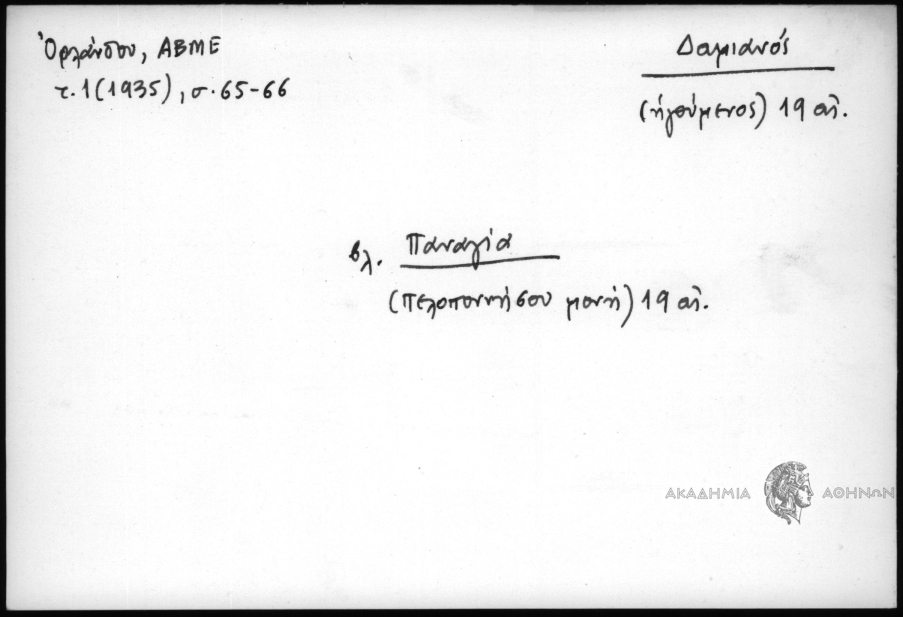 Ὀρλάνδου, ΑΒΜΕ
τ. 1 (1935), σ. 65-66
Δαμιανός
(ἡγούμενος) 19 αἰ.
βλ. Παναγία
(Πελοποννήσου μονή) 19 αἰ.
ΑΚΑΔΗΜΙΑ ΑΘΗΝΩΝ